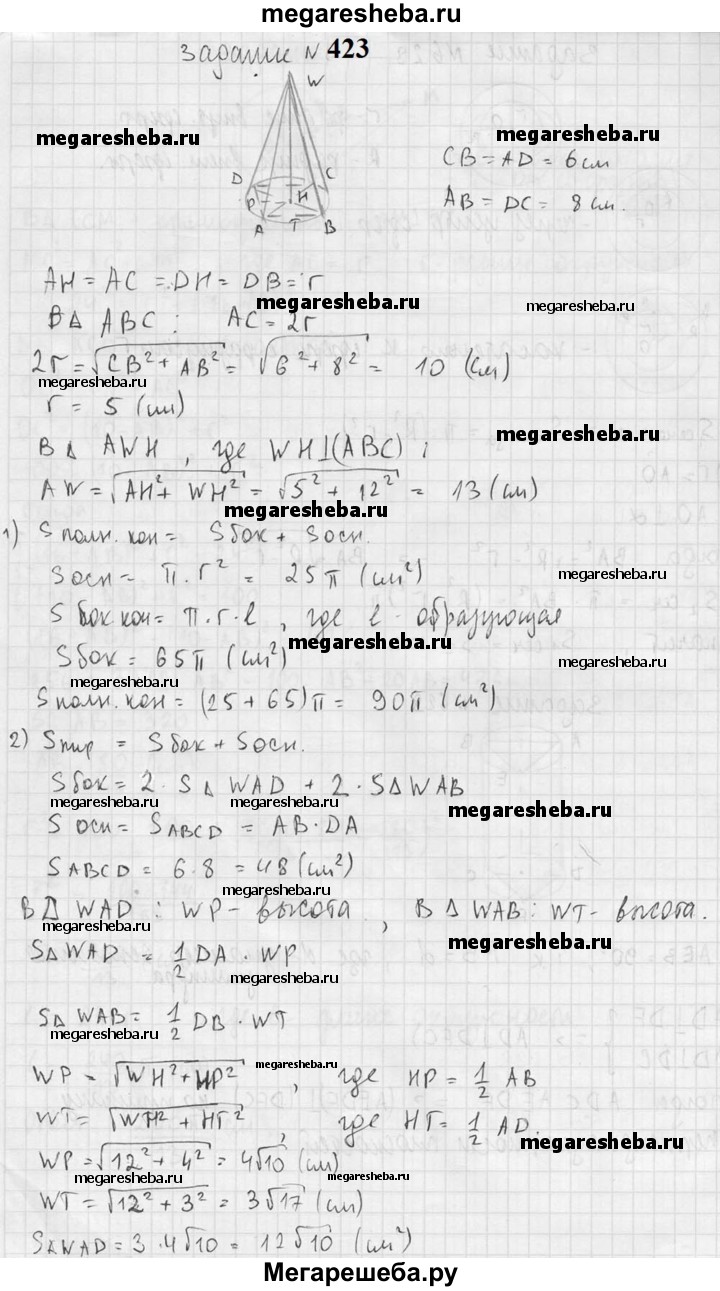 megaresheba.ru
Задание N 423
W
megaresheba.ru
D C
P H
A T B
CB = AD = 6 см
AB = DC = 8 см.
AH = AC = DH = DB = r
megaresheba.ru
megaresheba.ru
В Δ ABC : AC = 2r
2r = √CB² + AB² = √6² + 8² = 10 (см)
megaresheba.ru
r = 5 (см)
megaresheba.ru
В Δ AWH , где WH⊥(ABC) :
AW = √AH² + WH² = √5² + 12² = 13 (см)
megaresheba.ru
1) S полн. кон = Sбок + Sосн.
Sосн = π · r² = 25π (см²)
megaresheba.ru
S бок.кон = π · r · l , где l - образующая
megaresheba.ru
Sбок = 65π (см²)
megaresheba.ru
megaresheba.ru
S полн. кон = (25 + 65)π = 90π (см²)
2) Sпир = Sбок + Sосн.
Sбок = 2 · SΔ WAD + 2 · SΔ WAB
megaresheba.ru megaresheba.ru
megaresheba.ru
S осн = S ABCD = AB · DA
S ABCD = 6 · 8 = 48 (см²)
megaresheba.ru
В Δ WAD : WP - высота , В Δ WAB : WT - высота.
megaresheba.ru
megaresheba.ru
SΔ WAD = 1/2 DA · WP
SΔ WAB = 1/2 DB · WT
megaresheba.ru
megaresheba.ru
WP = √WH² + HP² , где HP = 1/2 AB
WT = √WH² + HT² , где HT = 1/2 AD.
megaresheba.ru
WP = √12² + 4² = 4√10 (см)
megaresheba.ru
WT = √12² + 3² = 3√17 (см)
megaresheba.ru
SΔ WAD = 3 · 4√10 = 12√10 (см²)
Мегарешеба.ру